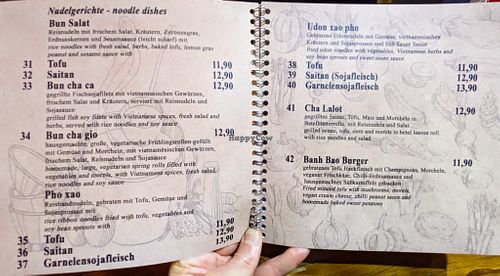 Nudelgerichte - noodle dishes
Bun Salat
Reisnudeln mit frischem Salat, Kräutern, Zitronengras,
Erdnusskernen und Sesamsauce (leicht scharf) mit
rice noodles with fresh salad, herbs, baked tofu, lemon grass
peanut and sesame sauce with
31 Tofu 11,90
32 Saitan 12,90
33 Bun cha ca 12,90
gegrillte Fischsojafilets mit vietnamesischen Gewürzen,
frischem Salat und Kräutern, serviert mit Reisnudeln und
Sojasauce
grilled fish soy filets with Vietnamese spices, fresh salad and
herbs, served with rice noodles and soy sauce
34 Bun cha gio 12,90
hausgemachte, große, vegetarische Frühlingsrollen gefüllt
mit Gemüse und Morcheln, mit vietnamesischen Gewürzen,
frischem Salat und Kräutern, Reisnudeln und
Sojasauce
homemade, large, vegetarian spring rolls filled with
vegetables and morels, with Vietnamese spices, fresh salad,
rice noodles and soy sauce
Pho xao
Reisbandnudeln, gebraten mit Tofu, Gemüse und
Sojasprossen mit
rice ribbon noodles fried with tofu, vegetables and
soy bean sprouts with
35 Tofu 11,90
36 Saitan 12,90
37 Garnelensojafleisch 13,90
Udon xao pho
Gebratene Udonnudeln mit Gemüse, vietnamesischen
Kräutern und Sojasprossen und Süß-Sauer Sauce
fried udon noodles with vegetables, Vietnamese herbs and
soy bean sprouts and sweet sauce
38 Tofu 11,90
39 Saitan (Sojafleisch) 12,90
40 Garnelensojafleisch 13,90
41 Cha Lalot 12,90
gegrilltes Seitan, Tofu, Mais und Morcheln in
Betelblattrolle, mit Reisnudeln und Salat
grilled seitan, tofu, corn and morels in betel leaves roll
with rice noodles and salad
42 Banh Bao Burger 11,90
gebratenes Tofu Hackfleisch mit Champignons, Morcheln,
veganer Frischkäse, Chili-Erdnusssauce und
hausgemachten Süßkartoffeln gebacken
Fried minced tofu with mushrooms, morels,
vegan cream cheese, chilli peanut sauce and
homemade baked sweet potatoes
HappyCow